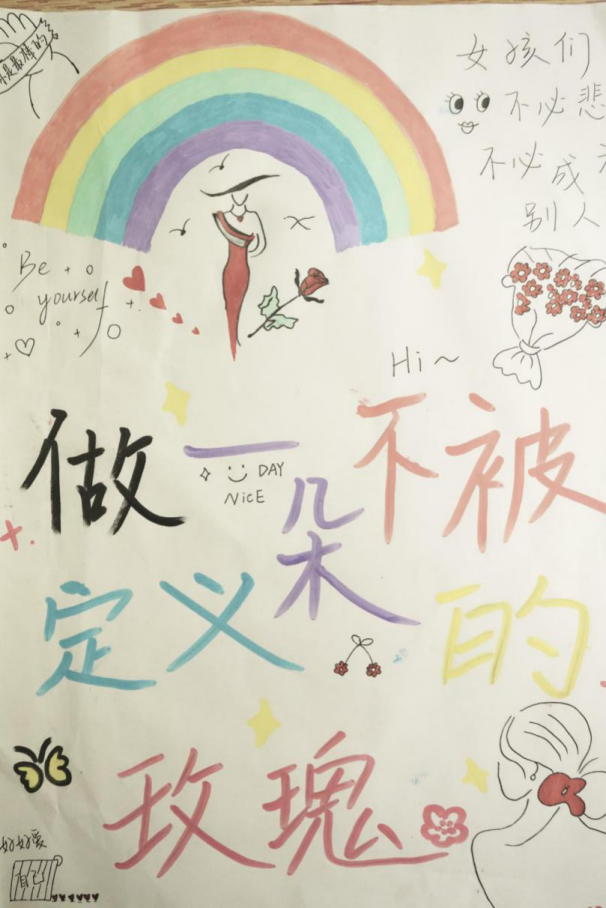 是最棒的
女孩们
不必悲
不必成
别人
Be
yourself
Hi~
做一朵不被
DAY
NiCE
定义的
玫瑰
好好爱
自己